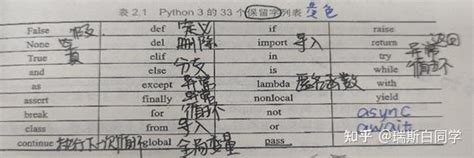 表 2.1 Python 3 的 33 个保留字列表 黄色
False def 定义 if raise
None del 删除 import 导入 return 返回
True 真 elif in try 异常
and else 分支 is while 循环
as except 异常 lambda 匿名函数 with
assert finally 异常 nonlocal yield
break for 循环 not async
class from or await
continue 执行下一次循环 global 全局变量 pass
知乎 @瑞斯白同学